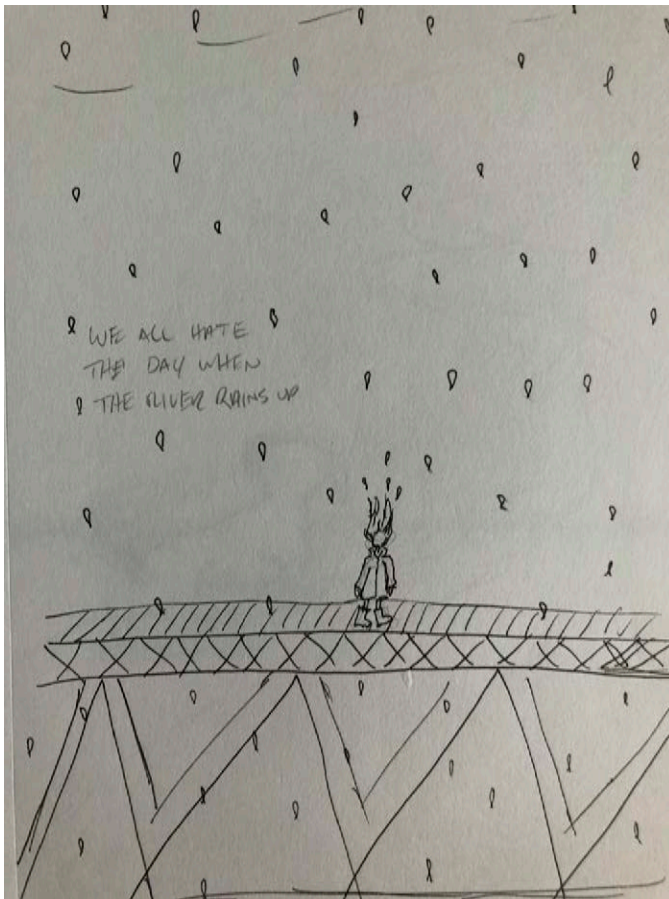 WE ALL HATE
THE DAY WHEN
THE RIVER RAINS UP